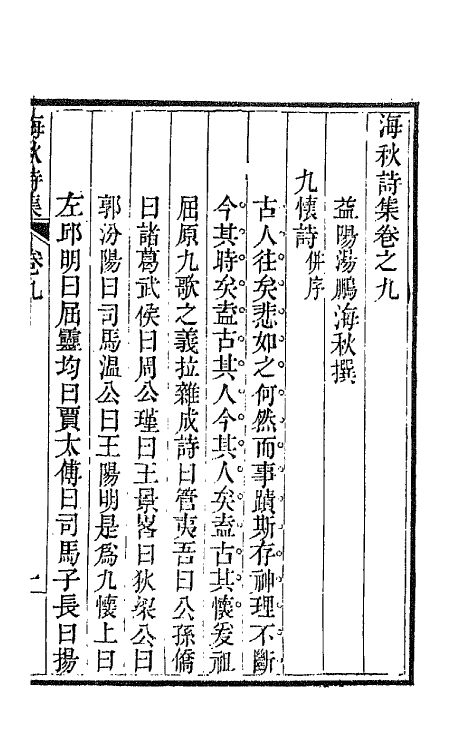 海秋詩集卷之九
益陽湯鵬海秋撰
九懷詩併序
古人往矣悲如之何然而事蹟斯存神理不斷
今其時矣盍古其人今其人矣盍古其懷爰祖
屈原九歌之義拉雜成詩曰管夷吾曰公孫僑
曰諸葛武侯曰周公瑾曰王景畧曰狄梁公曰
郭汾陽曰司馬溫公曰王陽明是爲九懷上曰
左邱明曰屈靈均曰賈太傅曰司馬子長曰揚
海秋詩集
卷九
一